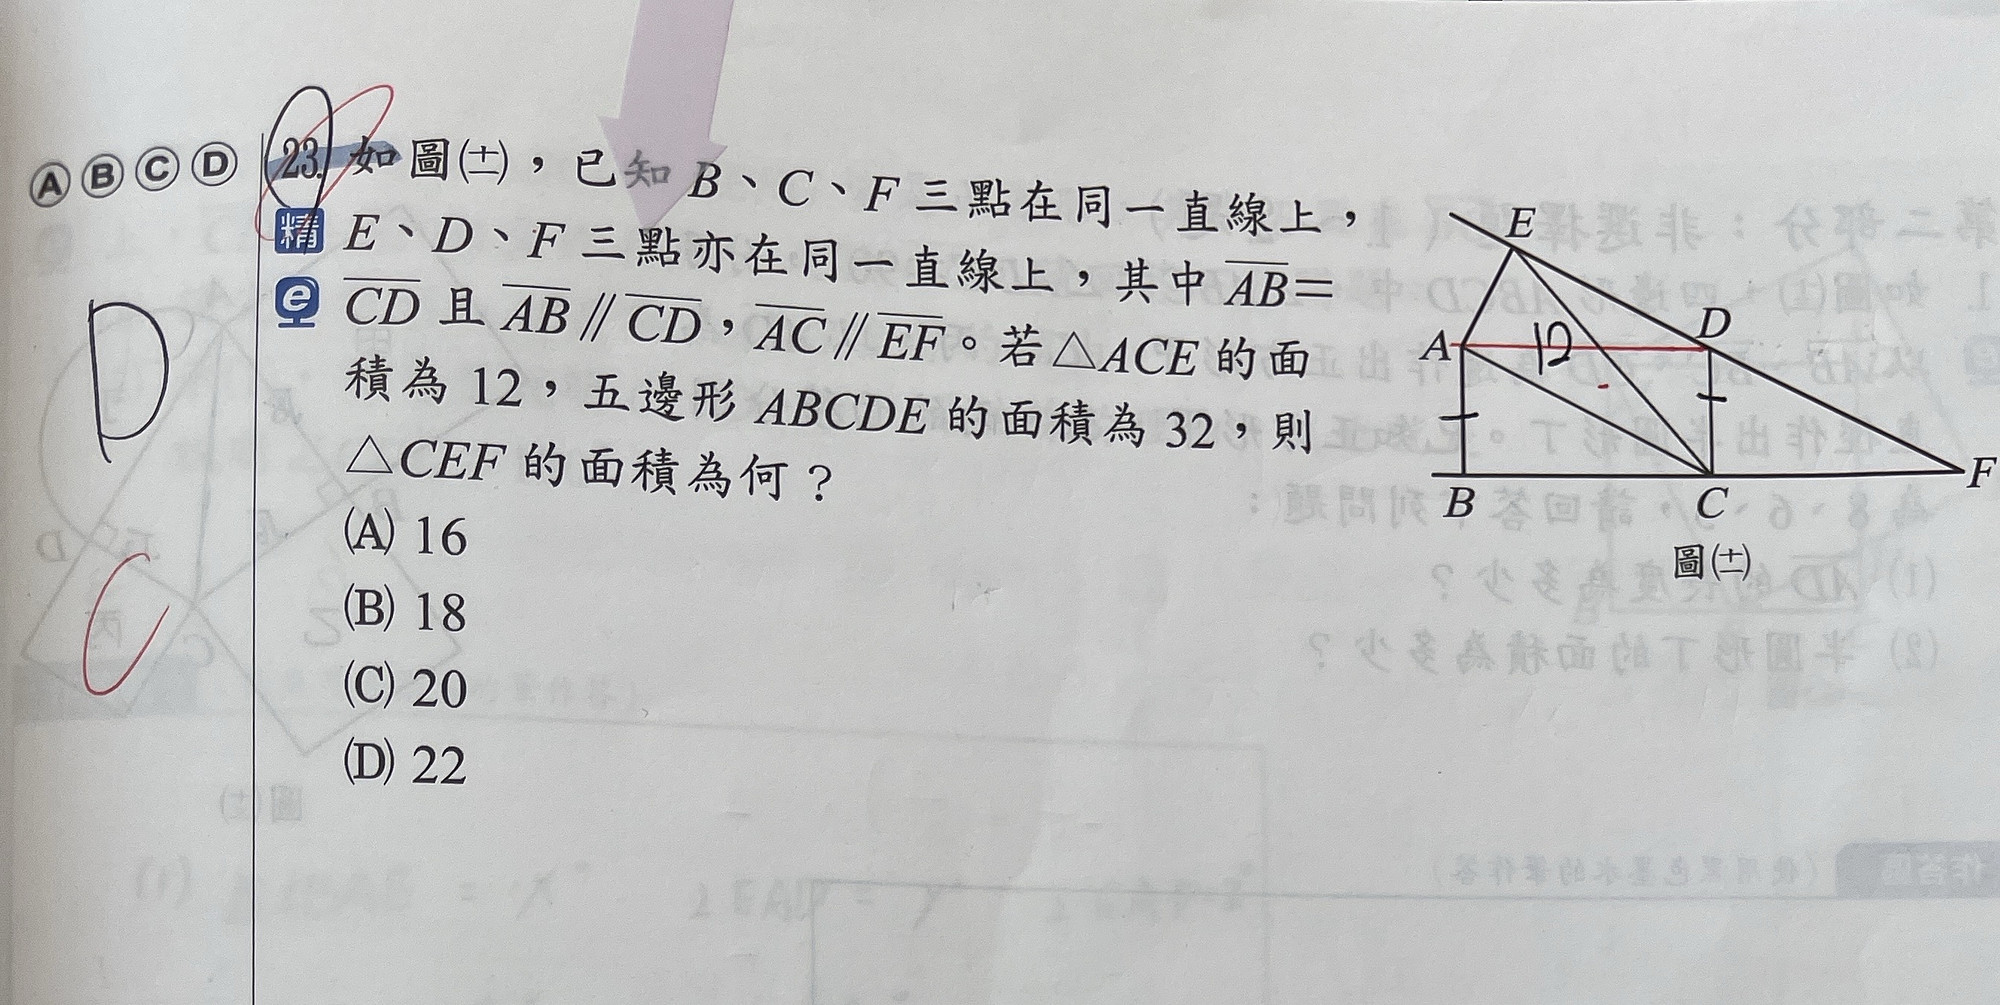 Ⓐ Ⓑ Ⓒ Ⓓ 23. 如圖(十二)，已知 B、C、F 三點在同一直線上，
精 E、D、F 三點亦在同一直線上，其中 AB＝
e CD 且 AB // CD，AC // EF。若△ACE 的面
積為 12，五邊形 ABCDE 的面積為 32，則
△CEF 的面積為何？
(A) 16
(B) 18
(C) 20
(D) 22
D
C
E
D
A
12
B
C
F
圖(十二)